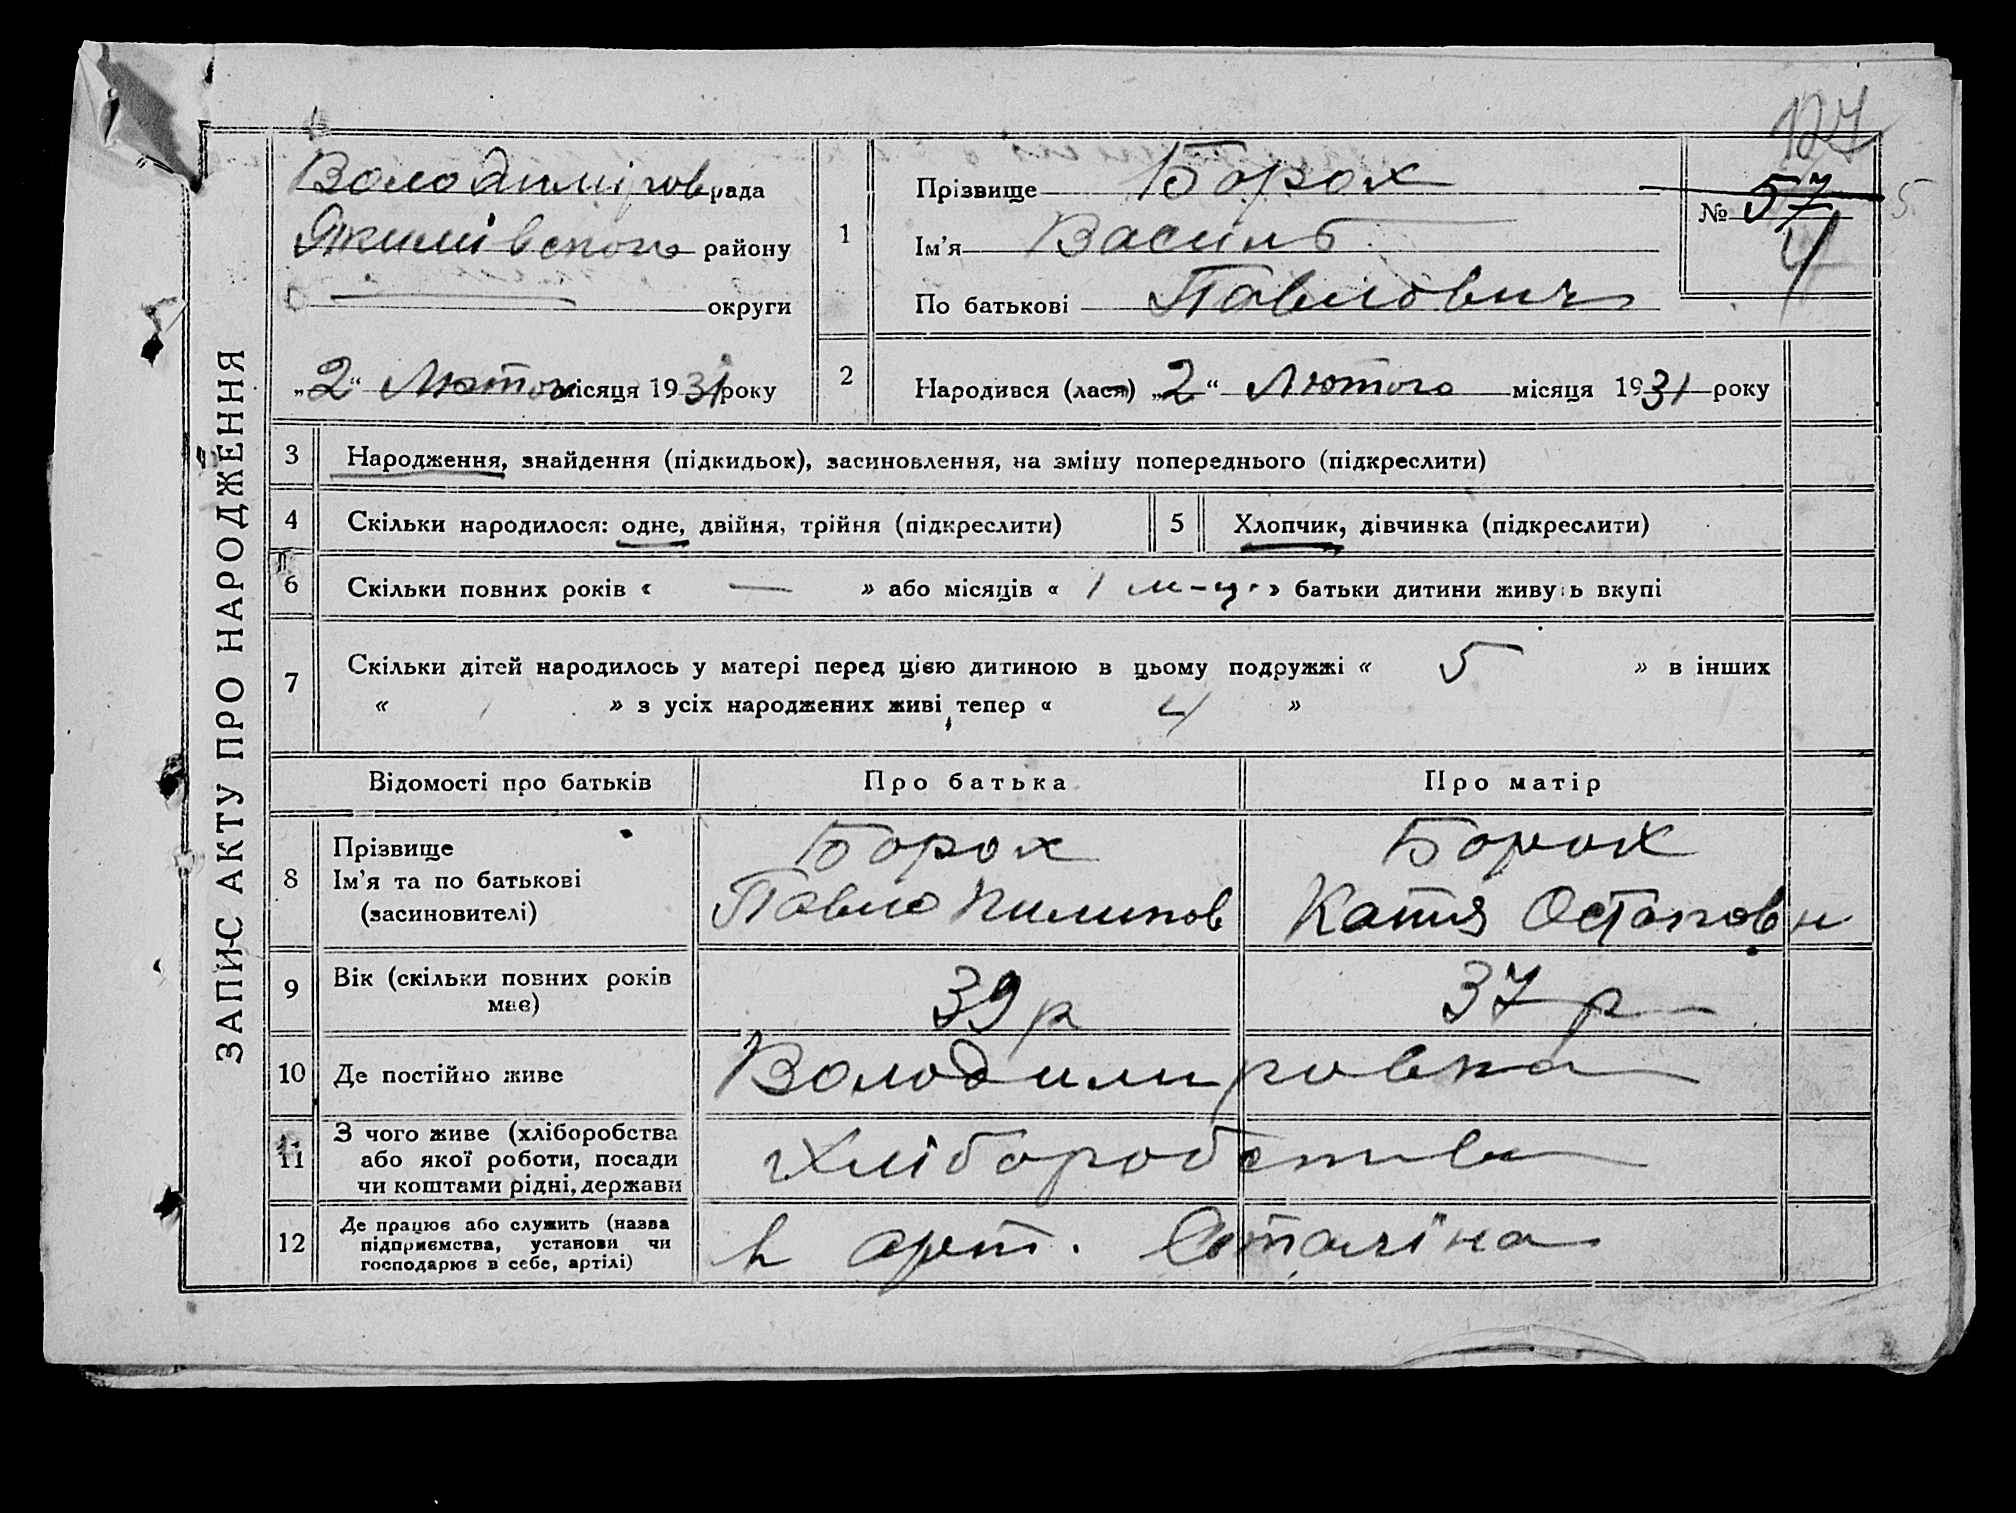 ЗАПИС АКТУ ПРО НАРОДЖЕННЯ
127
Володиміров рада
Якимівского району
округи
„2“ Лютого місяця 1931 року
1
Прізвище Борох
Ім’я Василь
По батькові Павлович
№ 57
4
5
2
Народився (лася) „2“ Лютого місяця 1931 року
3 Народження, знайдення (підкидьок), засиновлення, на зміну попереднього (підкреслити)
4 Скільки народилося: одне, двійня, трійня (підкреслити) 5 Хлопчик, дівчинка (підкреслити)
6 Скільки повних років « — » або місяців « 1 м-ц. » батьки дитини живуть вкупі
7 Скільки дітей народилось у матері перед цією дитиною в цьому подружжі « 5 » в інших
« » з усіх народжених живі тепер « 4 »
Відомості про батьків Про батька Про матір
8 Прізвище Борох Борох
Ім’я та по батькові Павло Пилипов Катя Остаповн
(засиновителі)
9 Вік (скільки повних років має) 39 р 37 р
10 Де постійно живе Володимировка
11 З чого живе (хліборобства
або якої роботи, посади
чи коштами рідні, держави
Хліборобства
12 Де працює або служить (назва
підприємства, установи чи
господарює в себе, артілі)
в арт. Сталіна